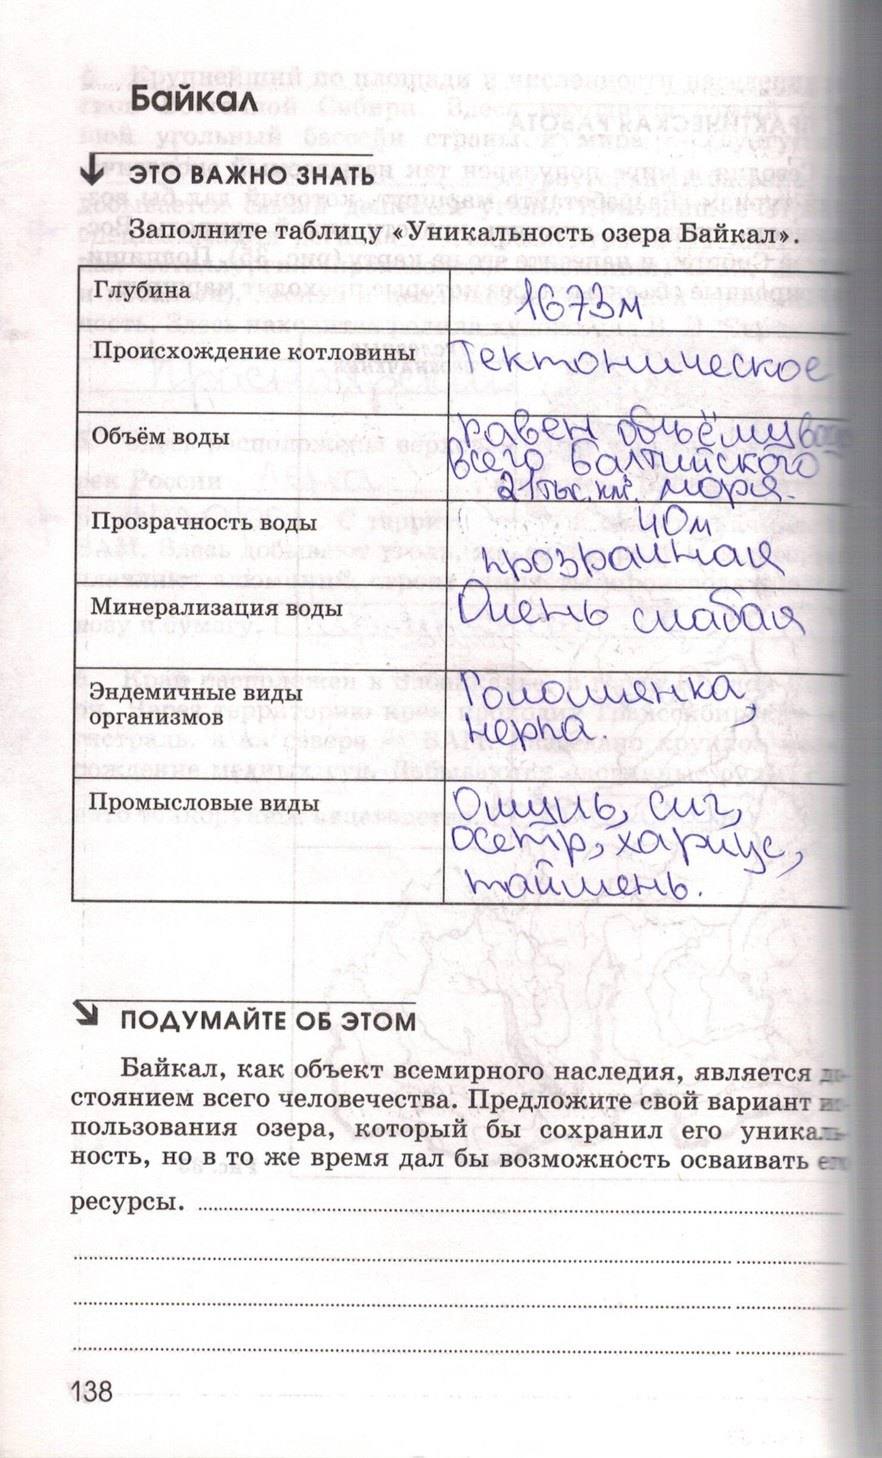 Байкал
ЭТО ВАЖНО ЗНАТЬ
Заполните таблицу «Уникальность озера Байкал».
Глубина
1673м
Происхождение котловины
Тектоническое
Объём воды
равен объёму воды
всего Балтийского
21тыс.км³. моря.
Прозрачность воды
40м
прозрачная
Минерализация воды
Очень слабая
Эндемичные виды
организмов
Голомянка,
нерпа.
Промысловые виды
Омуль, сиг,
осетр, хариус,
таймень.
ПОДУМАЙТЕ ОБ ЭТОМ
Байкал, как объект всемирного наследия, является до-
стоянием всего человечества. Предложите свой вариант ис-
пользования озера, который бы сохранил его уникаль-
ность, но в то же время дал бы возможность осваивать его
ресурсы.
138